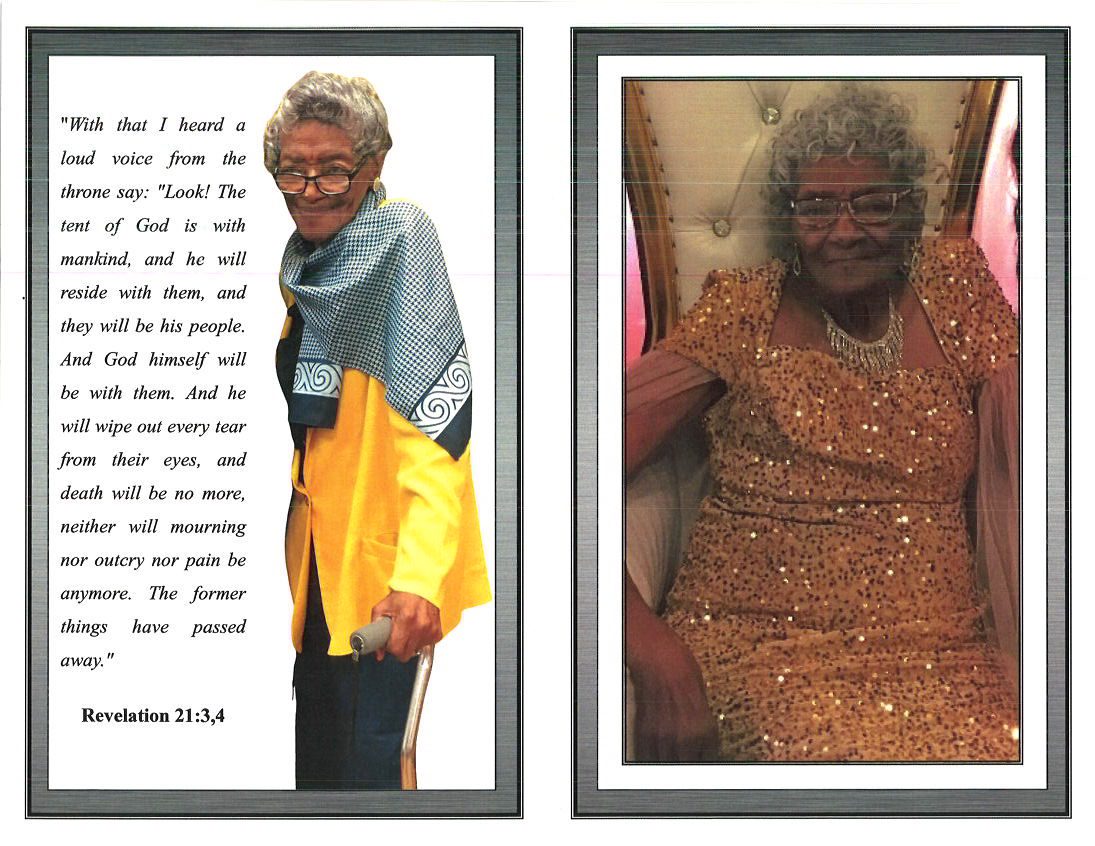 "With that I heard a
loud voice from the
throne say: "Look! The
tent of God is with
mankind, and he will
reside with them, and
they will be his people.
And God himself will
be with them. And he
will wipe out every tear
from their eyes, and
death will be no more,
neither will mourning
nor outcry nor pain be
anymore. The former
things have passed
away."
Revelation 21:3,4